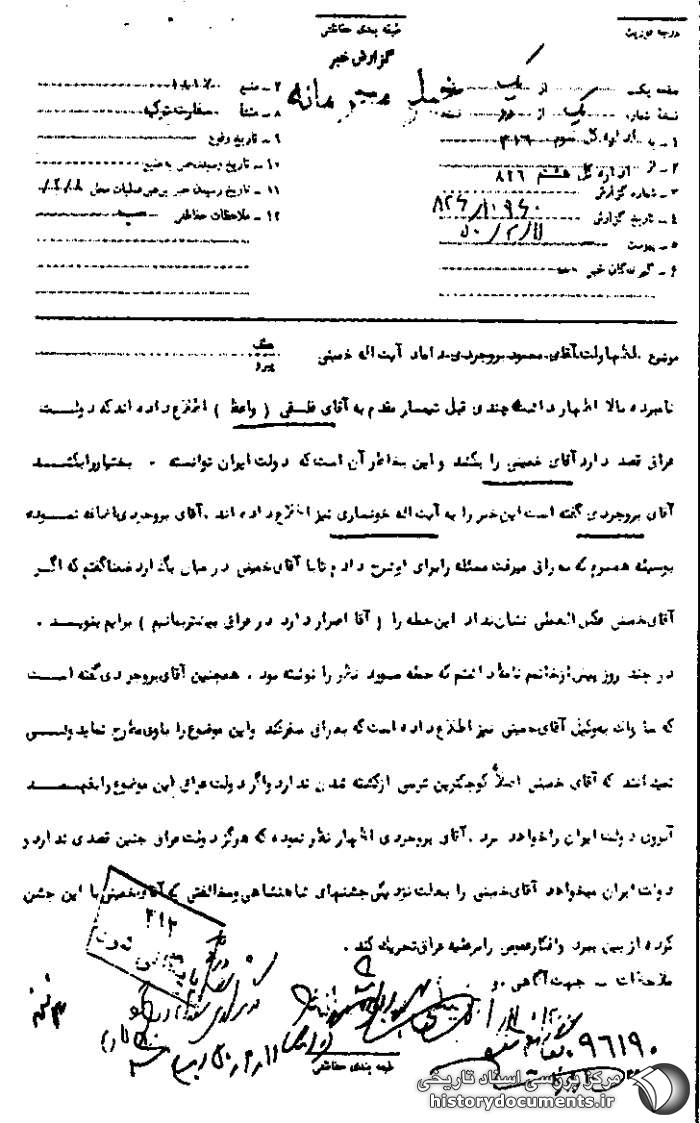 درجه فوریت
طبقه بندی حفاظتی
گزارش خبر
خیلی محرمانه
صفحه یک از یک
نسخه شماره یک از دو نسخه
۱ ـ به اداره کل سوم ۳۱۶
۲ ـ از اداره کل هشتم ۸۲۶
۳ ـ شماره گزارش
۴ ـ تاریخ گزارش ۵۰/۲/۱۱
۵ ـ پیوست
۶ ـ گیرندگان خبر
۷ ـ منبع
۸ ـ منشأ سفارت ترکیه
۹ ـ تاریخ وقوع
۱۰ ـ تاریخ رسیدن خبر به منبع
۱۱ ـ تاریخ رسیدن خبر به رهبر عملیات محل
۱۲ ـ ملاحظات حفاظتی
موضوع اظهارات آقای محمود بروجردی داماد آیت اله خمینی
عطف
پیرو
نامبرده بالا اظهار داشت چندی قبل تیمسار مقدم به آقای فلسفی ( واعظ ) اطلاع داده اند که دولت
عراق قصد دارد آقای خمینی را بکشد و این بخاطر آن است که دولت ایران توانسته بختیار را بکشد
آقای بروجردی گفته است این خبر را به آیت اله خونساری نیز اطلاع داده اند . آقای بروجردی اضافه نموده
بوسیله همسرم که به عراق میرفت مسئله را برای او شرح دادم تا با آقای خمینی در میان بگذارد ضمنا گفتم که اگر
آقای خمینی عکس العملی نشان نداد این جمله را ( آقا اصرار دارد در عراق بمانیم ) برایم بنویسد .
در چند روز پیش از خانم نامه داشتم که جمله مورد نظر را نوشته بود . همچنین آقای بروجردی گفته است
که به وکیل آقای خمینی نیز اطلاع داده است که به عراق سفر کند و این موضوع را با وی مطرح نماید ولی
نمیدانند که آقای خمینی اصلاً کوچکترین ترسی از کشته شدن ندارد و اگر دولت عراق این موضوع را بفهمد
آبروی دولت ایران را خواهد برد . آقای بروجردی اظهار نظر نموده که هرگز دولت عراق چنین قصدی ندارد و
دولت ایران میخواهد آقای خمینی را بعلت نزدیکی جشنهای شاهنشاهی و مخالفتی که آقای خمینی با این جشن
کرده از بین ببرد و افکار عمومی را بر علیه عراق تحریک کند .
ملاحظات جهت آگاهی
۳۱۲
۹۶۱۹۰
طبقه بندی حفاظتی
مرکز بررسی اسناد تاریخی
historydocuments.ir